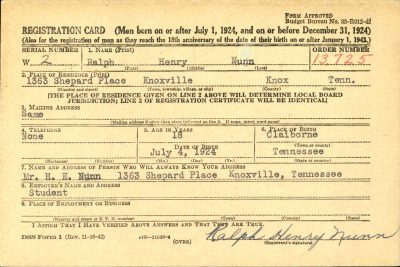 FORM APPROVED
Budget Bureau No. 33-R012-42
REGISTRATION CARD (Men born on or after July 1, 1924, and on or before December 31, 1924)
(Also for the registration of men as they reach the 18th anniversary of the date of their birth on or after January 1, 1943.)
SERIAL NUMBER 1. NAME (Print) ORDER NUMBER
W 2 Ralph Henry Nunn 13,725
(First) (Middle) (Last)
2. PLACE OF RESIDENCE (Print)
1363 Shepard Place Knoxville Knox Tenn.
(Number and street) (Town, township, village, or city) (County) (State)
[THE PLACE OF RESIDENCE GIVEN ON LINE 2 ABOVE WILL DETERMINE LOCAL BOARD
JURISDICTION; LINE 2 OF REGISTRATION CERTIFICATE WILL BE IDENTICAL]
3. MAILING ADDRESS
Same
[Mailing address if other than place indicated on line 2. If same, insert word same]
4. TELEPHONE 5. AGE IN YEARS 6. PLACE OF BIRTH
None 18 Claiborne
DATE OF BIRTH (Town or county)
July 4, 1924 Tennessee
(Exchange) (Number) (Mo.) (Day) (Yr.) (State or country)
7. NAME AND ADDRESS OF PERSON WHO WILL ALWAYS KNOW YOUR ADDRESS
Mr. H. E. Nunn 1363 Shepard Place Knoxville, Tennessee
8. EMPLOYER'S NAME AND ADDRESS
Student
9. PLACE OF EMPLOYMENT OR BUSINESS
(Number and street or R. F. D. number) (Town) (County) (State)
I AFFIRM THAT I HAVE VERIFIED ABOVE ANSWERS AND THAT THEY ARE TRUE.
DSS Form 1 (Rev. 11-16-42) (OVER) Ralph Henry Nunn
(Registrant's signature)